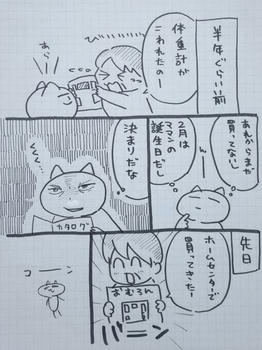 半年ぐらい前
びぃーん
体重計が
こわれたのー
あら
あれからまだ
買ってないし
2月は
ママンの
誕生日だし
ん
決まりだな
くくく
カタログ
先日
ホームセンターで
買ってきたー!
おむろん
バーン
コーン